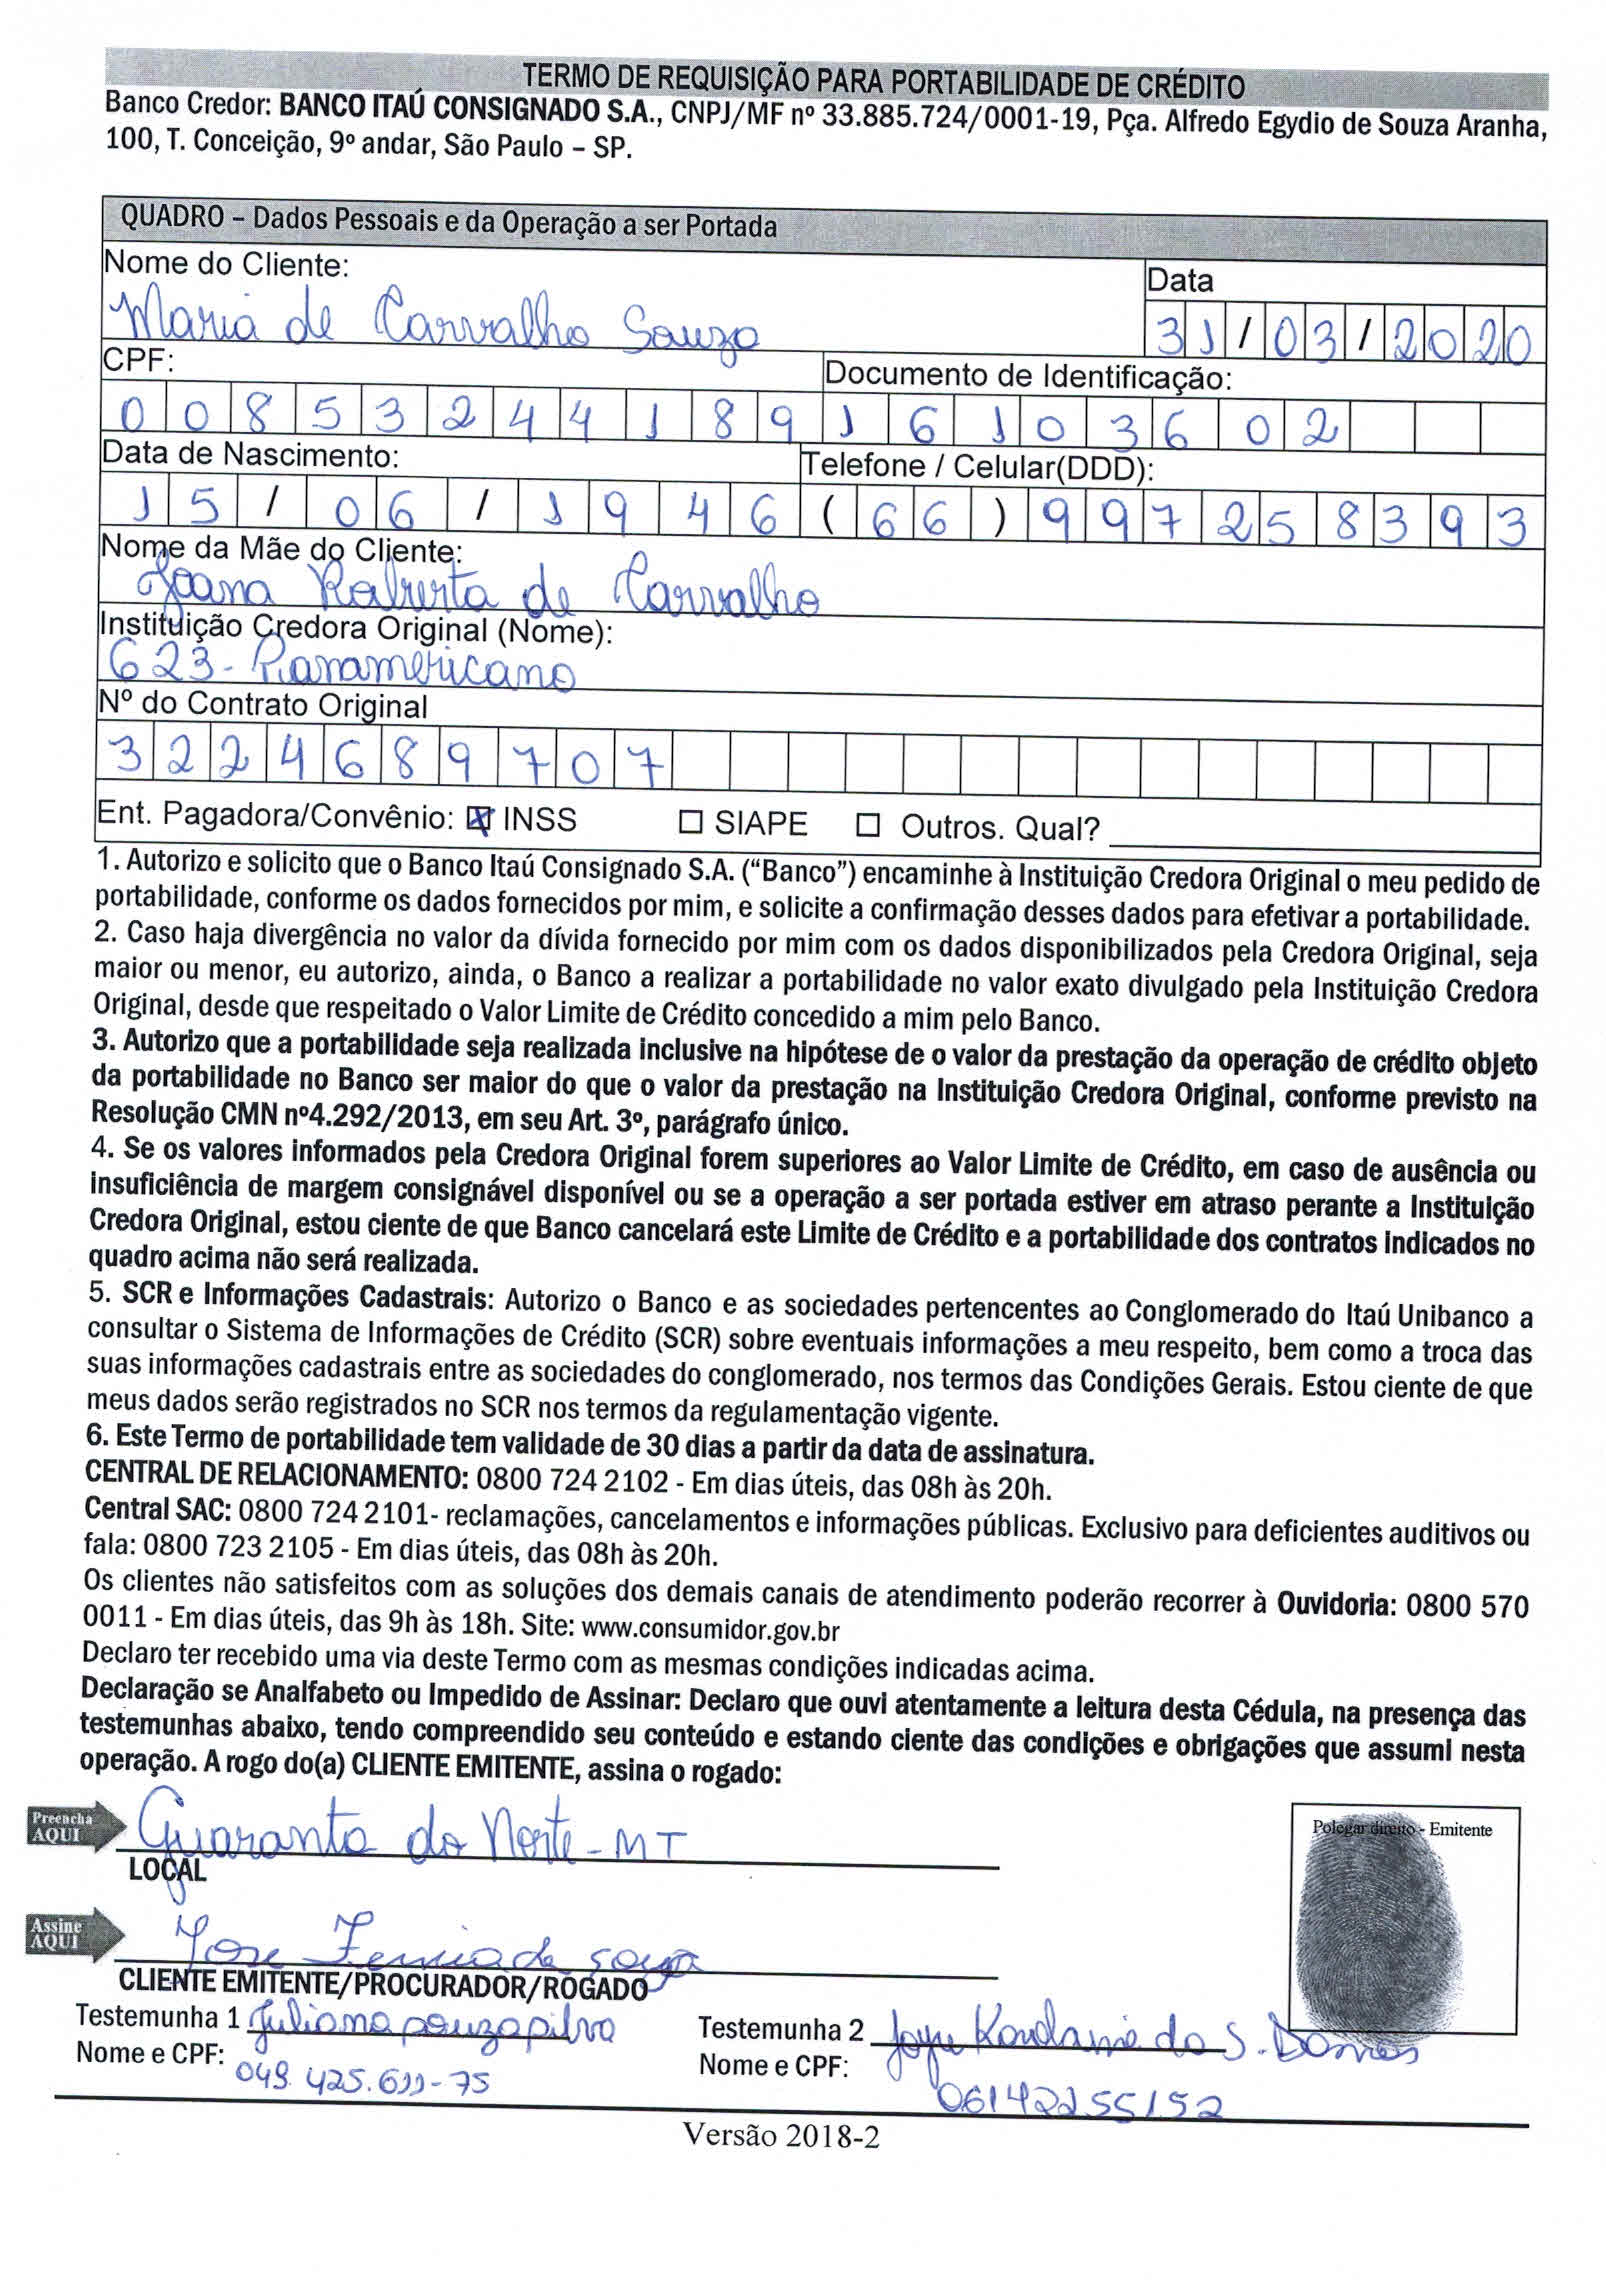 TERMO DE REQUISIÇÃO PARA PORTABILIDADE DE CRÉDITO
Banco Credor: BANCO ITAÚ CONSIGNADO S.A., CNPJ/MF nº 33.885.724/0001-19, Pça. Alfredo Egydio de Souza Aranha,
100, T. Conceição, 9º andar, São Paulo – SP.
QUADRO – Dados Pessoais e da Operação a ser Portada
Nome do Cliente:
Data
Maria de Carvalho Souza
31/03/2020
CPF:
Documento de Identificação:
00853244189
16103602
Data de Nascimento:
Telefone / Celular(DDD):
15/06/1946
(66)997258393
Nome da Mãe do Cliente:
Joana Roberta de Carvalho
Instituição Credora Original (Nome):
623-Panamericano
Nº do Contrato Original
3224689707
Ent. Pagadora/Convênio: ☒ INSS ☐ SIAPE ☐ Outros. Qual?
1. Autorizo e solicito que o Banco Itaú Consignado S.A. (“Banco”) encaminhe à Instituição Credora Original o meu pedido de
portabilidade, conforme os dados fornecidos por mim, e solicite a confirmação desses dados para efetivar a portabilidade.
2. Caso haja divergência no valor da dívida fornecido por mim com os dados disponibilizados pela Credora Original, seja
maior ou menor, eu autorizo, ainda, o Banco a realizar a portabilidade no valor exato divulgado pela Instituição Credora
Original, desde que respeitado o Valor Limite de Crédito concedido a mim pelo Banco.
3. Autorizo que a portabilidade seja realizada inclusive na hipótese de o valor da prestação da operação de crédito objeto
da portabilidade no Banco ser maior do que o valor da prestação na Instituição Credora Original, conforme previsto na
Resolução CMN nº4.292/2013, em seu Art. 3º, parágrafo único.
4. Se os valores informados pela Credora Original forem superiores ao Valor Limite de Crédito, em caso de ausência ou
insuficiência de margem consignável disponível ou se a operação a ser portada estiver em atraso perante a Instituição
Credora Original, estou ciente de que Banco cancelará este Limite de Crédito e a portabilidade dos contratos indicados no
quadro acima não será realizada.
5. SCR e Informações Cadastrais: Autorizo o Banco e as sociedades pertencentes ao Conglomerado do Itaú Unibanco a
consultar o Sistema de Informações de Crédito (SCR) sobre eventuais informações a meu respeito, bem como a troca das
suas informações cadastrais entre as sociedades do conglomerado, nos termos das Condições Gerais. Estou ciente de que
meus dados serão registrados no SCR nos termos da regulamentação vigente.
6. Este Termo de portabilidade tem validade de 30 dias a partir da data de assinatura.
CENTRAL DE RELACIONAMENTO: 0800 724 2102 - Em dias úteis, das 08h às 20h.
Central SAC: 0800 724 2101- reclamações, cancelamentos e informações públicas. Exclusivo para deficientes auditivos ou
fala: 0800 723 2105 - Em dias úteis, das 08h às 20h.
Os clientes não satisfeitos com as soluções dos demais canais de atendimento poderão recorrer à Ouvidoria: 0800 570
0011 - Em dias úteis, das 9h às 18h. Site: www.consumidor.gov.br
Declaro ter recebido uma via deste Termo com as mesmas condições indicadas acima.
Declaração se Analfabeto ou Impedido de Assinar: Declaro que ouvi atentamente a leitura desta Cédula, na presença das
testemunhas abaixo, tendo compreendido seu conteúdo e estando ciente das condições e obrigações que assumi nesta
operação. A rogo do(a) CLIENTE EMITENTE, assina o rogado:
Preencha
AQUI
Guaranta do Norte-MT
Polegar direito - Emitente
LOCAL
Assine
AQUI
Jose de souza
CLIENTE EMITENTE/PROCURADOR/ROGADO
Testemunha 1 Juliana souza silva
Testemunha 2 da S.
Nome e CPF: 049.425.611-75
Nome e CPF: 06142255152
Versão 2018-2